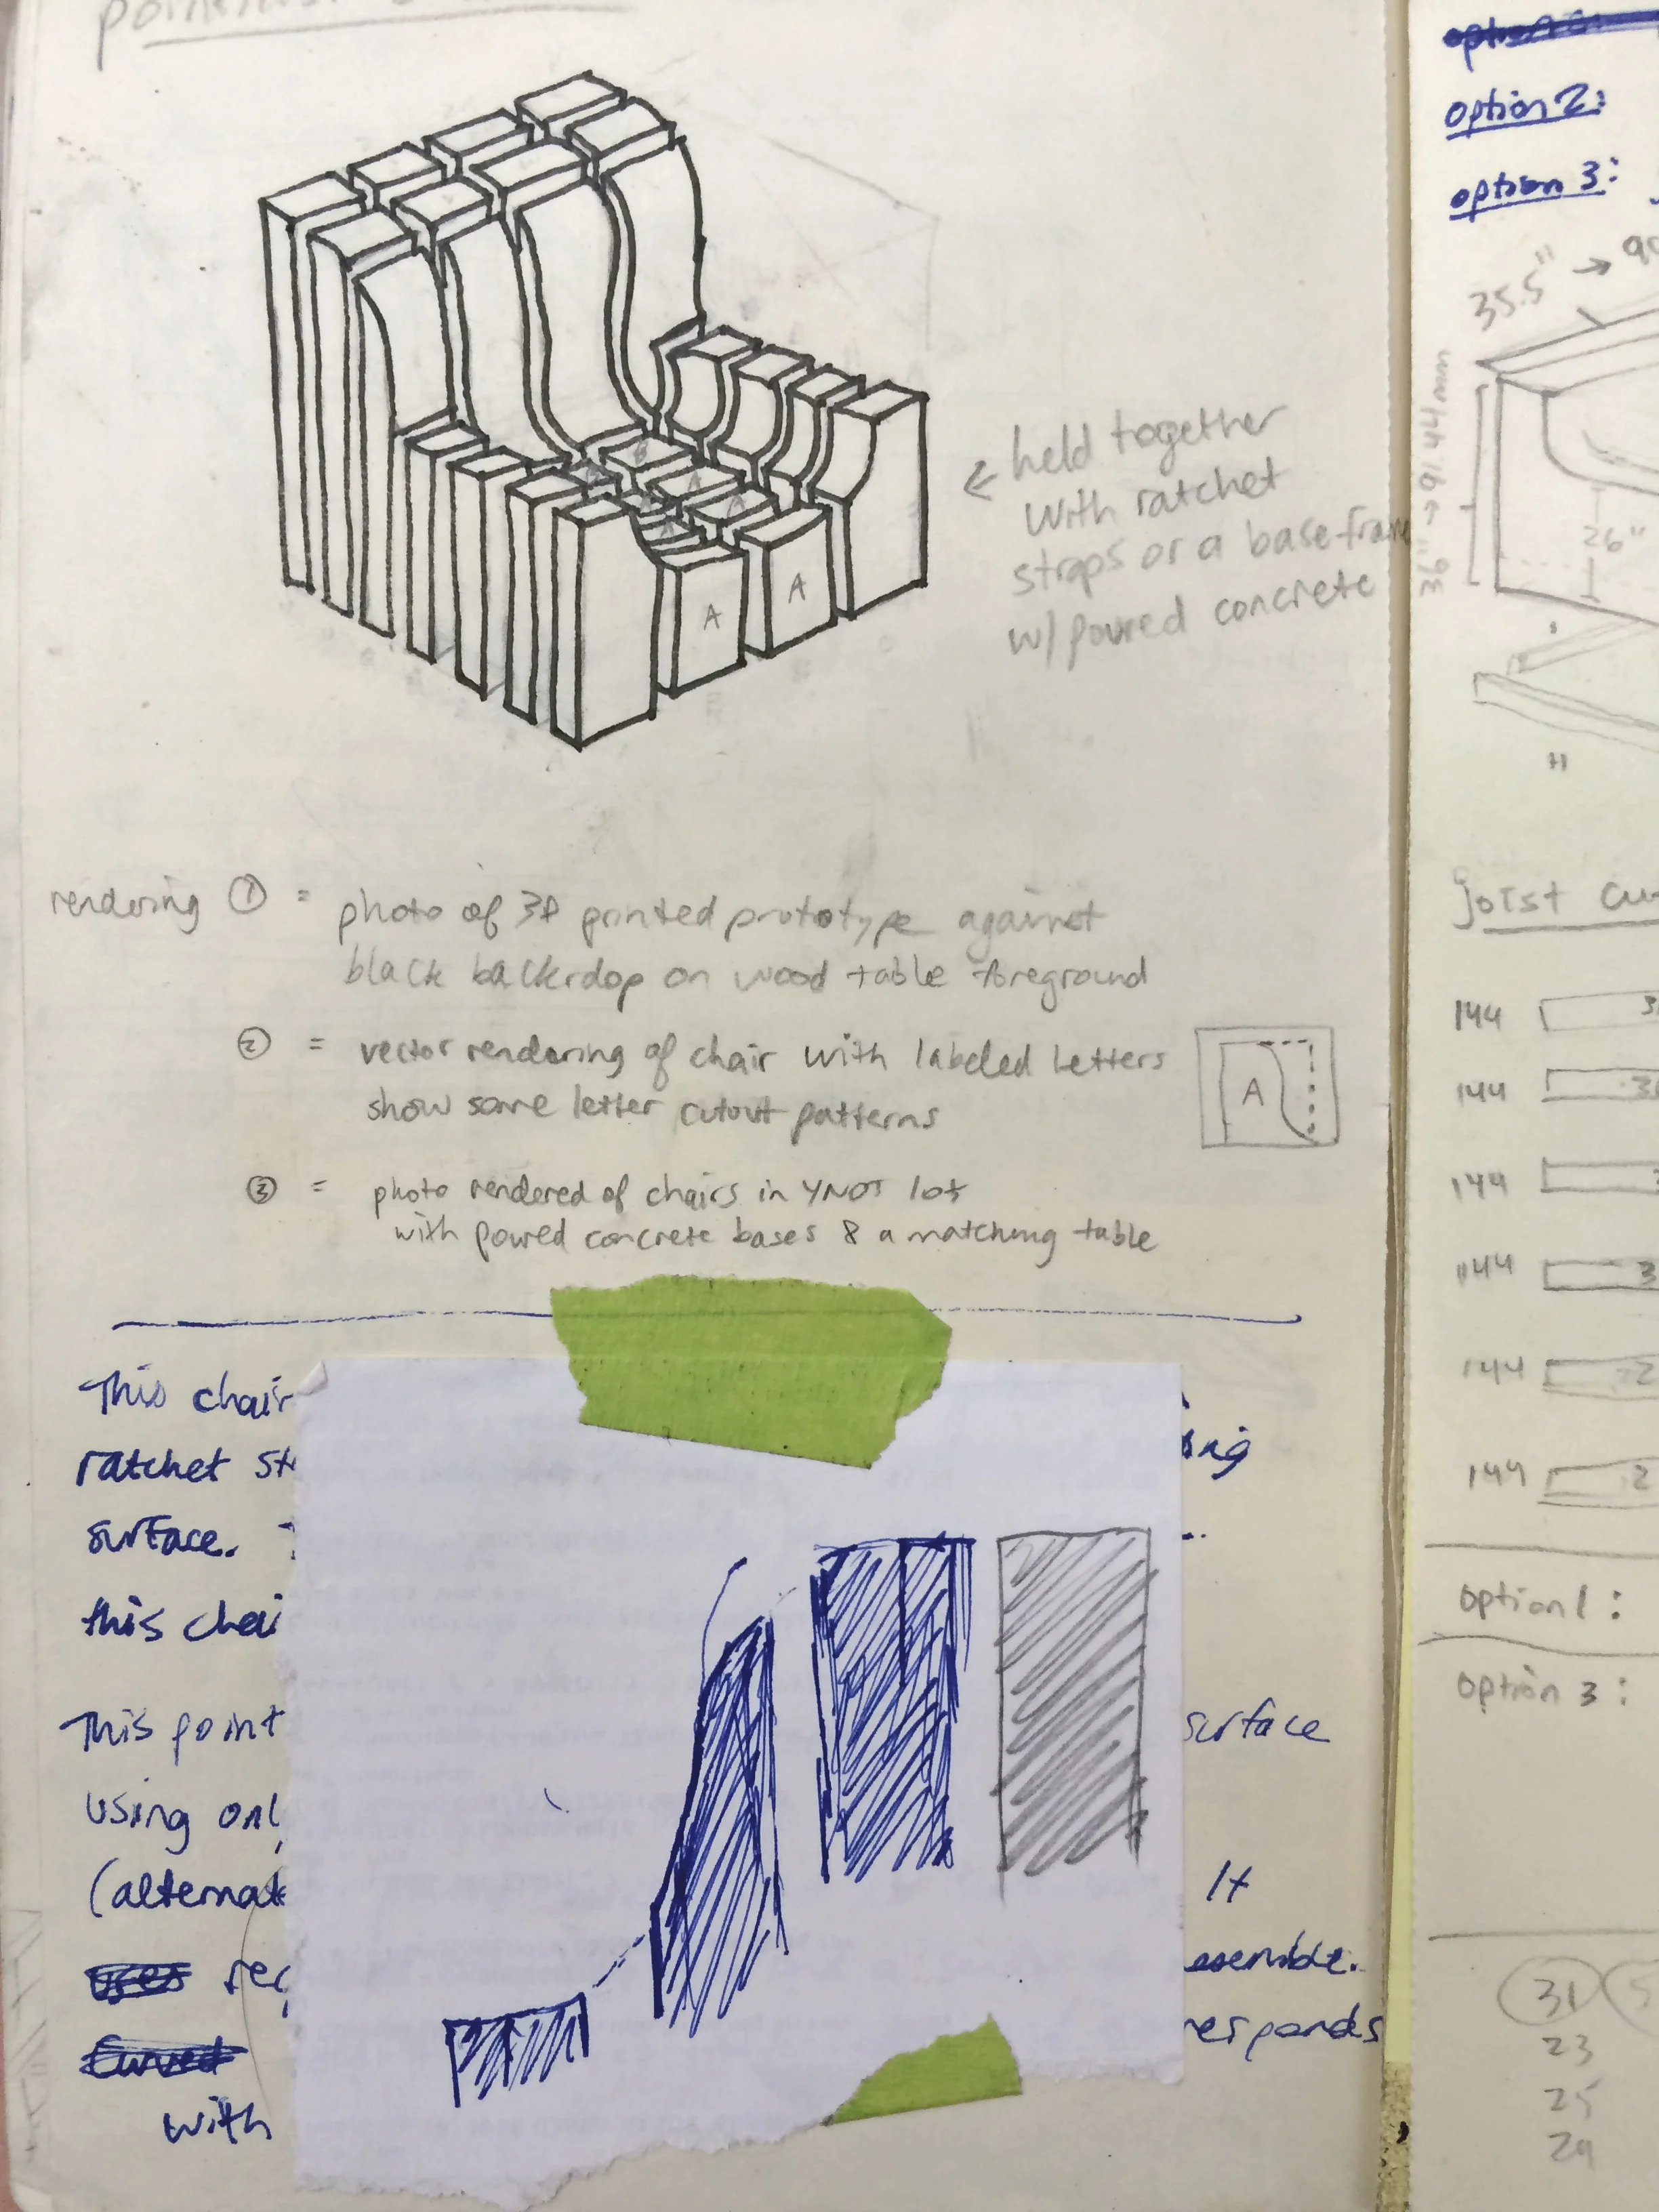 ← held together
with ratchet
straps or a base frame
w/ poured concrete
A
A
rendering ① = photo of 3D printed prototype against
black backdrop on wood table foreground
② = vector rendering of chair with labeled letters
show some letter cutout patterns
A
③ = photo rendered of chairs in YNOT lot
with poured concrete bases & a matching table
This chair
ratchet
surface.
this
This point
surface
using
It
with
option 2:
option 3:
35.5" →
36" → 91.44mm
26"
H
joist
144
144
144
144
144
144
option 1:
option 3:
31
23
25
29